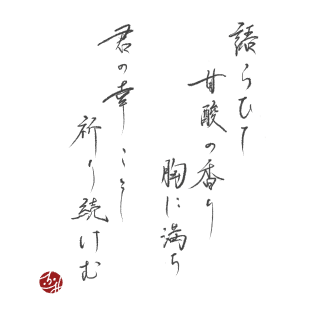 語らひて
甘酸の香り
胸に満ち
君の幸こそ
祈り続けむ